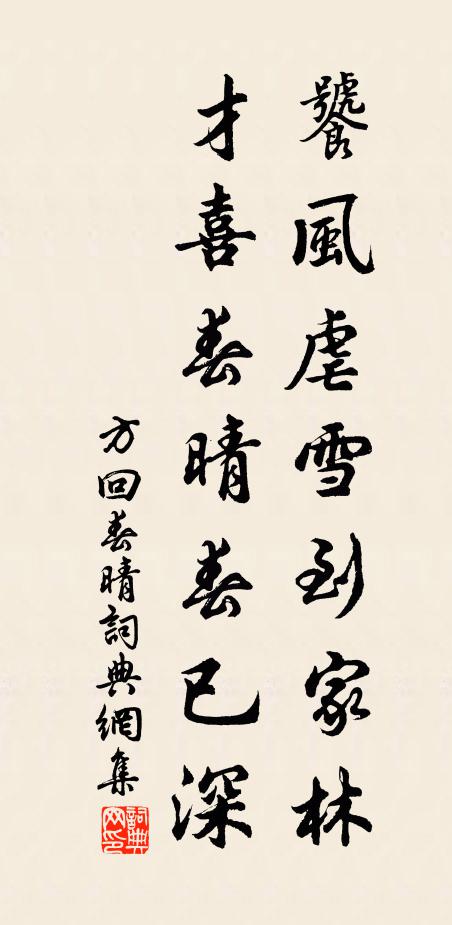 饕風虐雪到家林
才喜春晴春已深
方回春晴詞典網集
詞典网印